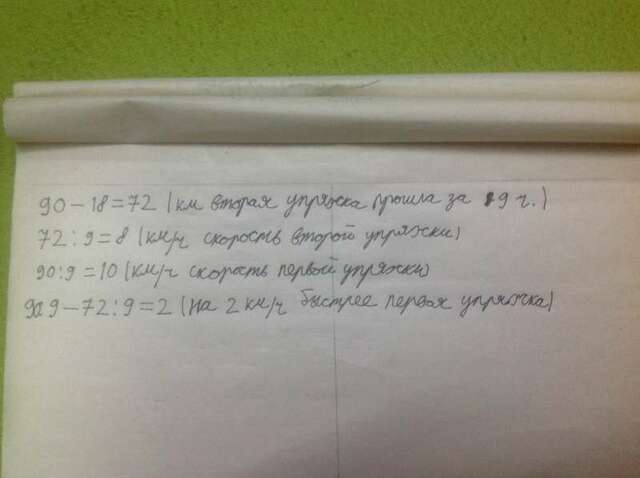 90-18=72 (км вторая упряжка прошла за 9 ч.)
72:9=8 (км/ч скорость второй упряжки)
90:9=10 (км/ч скорость первой упряжки)
90:9-72:9=2 (на 2 км/ч быстрее первая упряжка)